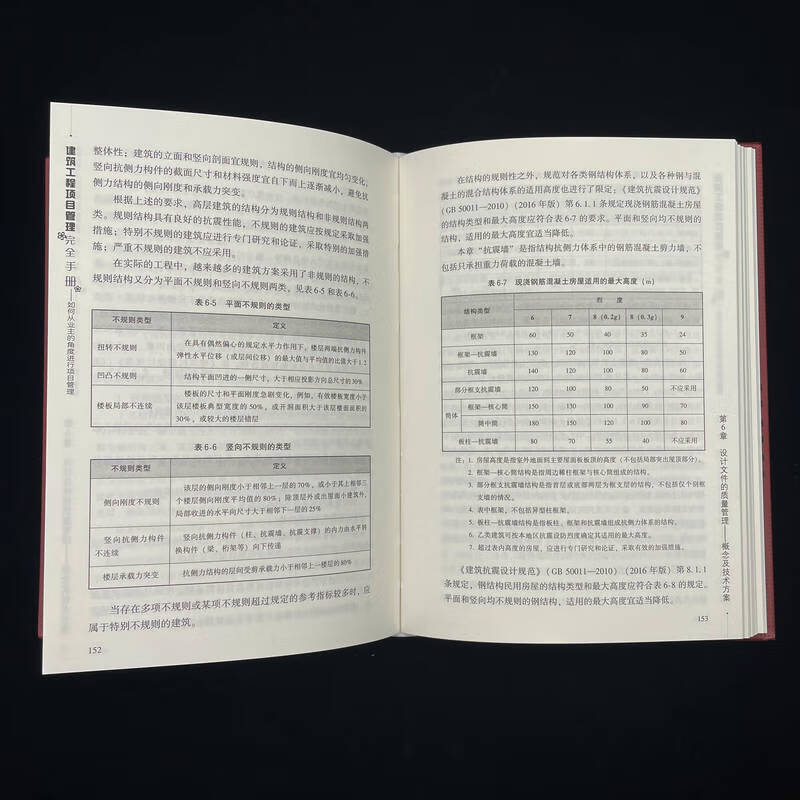 建筑工程项目管理完全手册——如何从业主的角度进行项目管理
整体性；建筑的立面和竖向剖面宜规则，结构的侧向刚度宜均匀变化，
竖向抗侧力构件的截面尺寸和材料强度宜自下而上逐渐减小，避免抗
侧力结构的侧向刚度和承载力突变。
根据上述的要求，高层建筑的结构分为规则结构和非规则结构两
类。规则结构具有良好的抗震性能，不规则的建筑应按规定采取加强
措施；特别不规则的建筑应进行专门研究和论证，采取特别的加强措
施；严重不规则的建筑不应采用。
在实际的工程中，越来越多的建筑方案采用了非规则的结构，不
规则结构又分为平面不规则和竖向不规则两类，见表6-5和表6-6。
表 6-5 平面不规则的类型
不规则类型 定义
扭转不规则 在具有偶然偏心的规定水平力作用下，楼层两端抗侧力构件
弹性水平位移（或层间位移）的最大值与平均值的比值大于1.2
凹凸不规则 结构平面凹进的一侧尺寸，大于相应投影方向总尺寸的30%
楼板局部不连续 楼板的尺寸和平面刚度急剧变化，例如，有效楼板宽度小于
该层楼板典型宽度的50%，或开洞面积大于该层楼面面积的
30%，或较大的楼层错层
表 6-6 竖向不规则的类型
不规则类型 定义
侧向刚度不规则 该层的侧向刚度小于相邻上一层的70%，或小于其上相邻三
个楼层侧向刚度平均值的80%；除顶层外或出屋面小建筑外，
局部收进的水平向尺寸大于相邻下一层的25%
竖向抗侧力构件
不连续
竖向抗侧力构件（柱、抗震墙、抗震支撑）的内力由水平转
换构件（梁、桁架等）向下传递
楼层承载力突变 抗侧力结构的层间受剪承载力小于相邻上一楼层的80%
当存在多项不规则或某项不规则超过规定的参考指标较多时，应
属于特别不规则的建筑。
152
在结构的规则性之外，规范对各类钢结构体系，以及各种钢与混
凝土的混合结构体系的适用高度也进行了限定；《建筑抗震设计规范》
（GB 50011—2010）（2016年版）第6.1.1条规定现浇钢筋混凝土房屋
的结构类型和最大高度应符合表6-7的要求。平面和竖向均不规则的
结构，适用的最大高度宜适当降低。
本章“抗震墙”是指结构抗侧力体系中的钢筋混凝土剪力墙，不
包括只承担重力荷载的混凝土墙。
表 6-7 现浇钢筋混凝土房屋适用的最大高度（m）
结构类型 烈 度
6 7 8（0.2g） 8（0.3g） 9
框架 60 50 40 35 24
框架—抗震墙 130 120 100 80 50
抗震墙 140 120 100 80 60
部分框支抗震墙 120 100 80 50 不应采用
筒体 框架—核心筒 150 130 100 90 70
筒中筒 180 150 120 100 80
板柱—抗震墙 80 70 55 40 不应采用
注：1. 房屋高度是指室外地面到主要屋面板板顶的高度（不包括局部突出屋顶部分）。
2. 框架—核心筒结构是指周边稀柱框架与核心筒组成的结构。
3. 部分框支抗震墙结构是指首层或底部两层为框支层的结构，不包括仅个别框
支墙的情况。
4. 表中框架，不包括异型柱框架。
5. 板柱—抗震墙结构是指板柱、框架和抗震墙组成抗侧力体系的结构。
6. 乙类建筑可按本地区抗震设防烈度确定其适用的最大高度。
7. 超过表内高度的房屋，应进行专门研究和论证，采取有效的加强措施。
《建筑抗震设计规范》（GB 50011—2010）（2016年版）第8.1.1
条规定，钢结构民用房屋的结构类型和最大高度应符合表6-8的规定。
平面和竖向均不规则的钢结构，适用的最大高度宜适当降低。
153
第6章 设计文件的质量管理——概念及技术方案